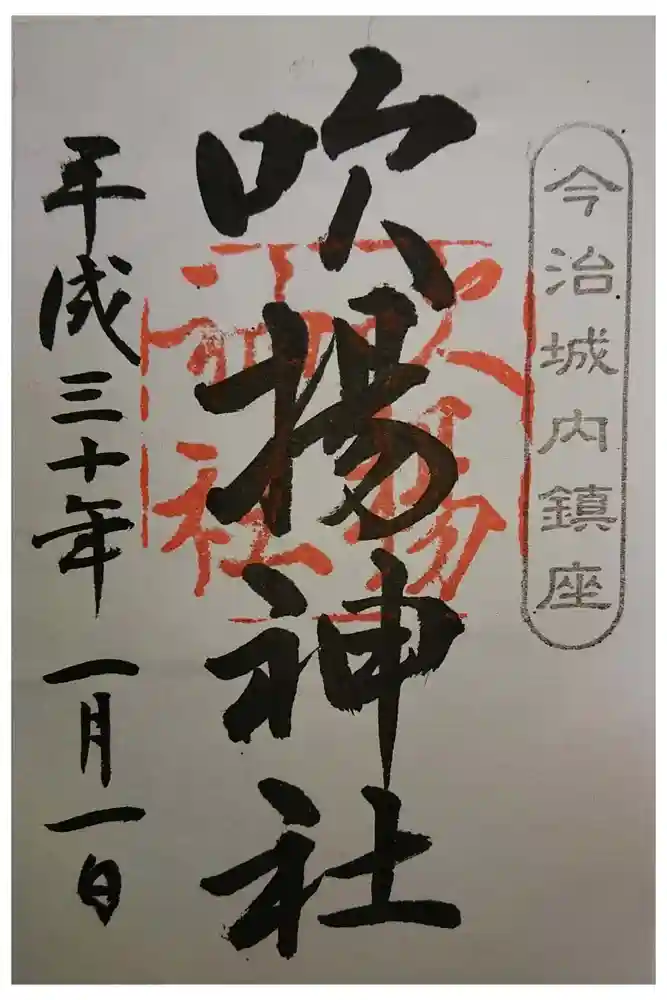 今治城内鎮座
吹揚神社
吹揚
神社
平成三十年 一月一日